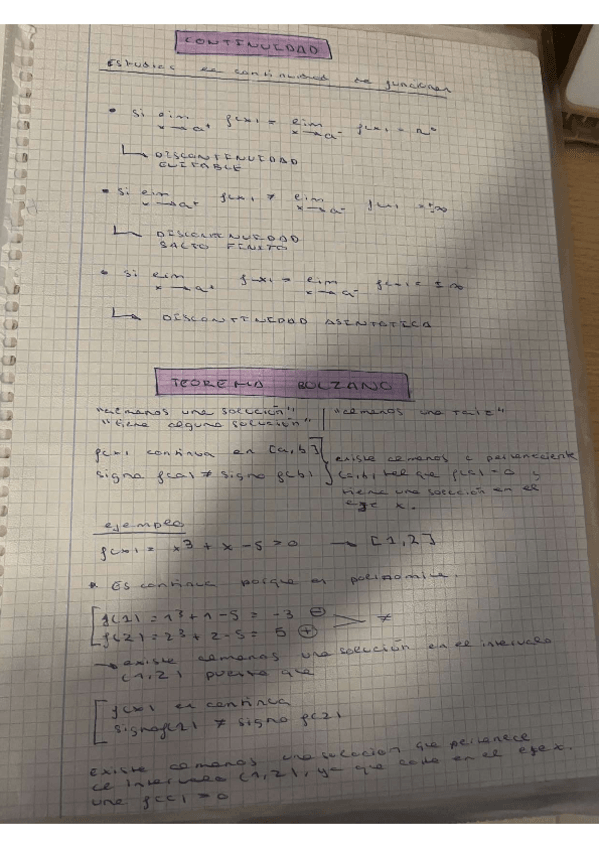 CONTINUIDAD
Estudios de continuidad de funciones
• si lim x→a⁺ f(x) = lim x→a⁻ f(x) = nº
↳ DISCONTINUIDAD
EVITABLE
• si lim x→a⁺ f(x) ≠ lim x→a⁻ f(x) ≠±∞
↳ DISCONTINUIDAD
SALTO FINITO
• si lim x→a⁺ f(x) = lim x→a⁻ f(x) = ±∞
↳ DISCONTINUIDAD ASINTOTICA
TEOREMA BOLZANO
"almenos una solución" | "almenos una raíz"
"tiene alguna solución"
f(x) continua en [a,b] existe almenos c perteneciente
signo f(a) ≠ signo f(b) (a,b) tal que f(c) = 0 y
tiene una solución en el
eje x.
ejemplo
f(x) = x³ + x - 5 = 0 → [1,2]
* Es continua porque es polinómica.
f(1) = 1³ + 1 - 5 = -3 ⊖
≠
f(2) = 2³ + 2 - 5 = 5 ⊕
→ existe almenos una solución en el intervalo
(1,2) puesto que
f(x) es continua
signo f(1) ≠ signo f(2)
Existe almenos una solución que pertenece
al intervalo (1,2), ya que en el eje x.
una f(c) = 0